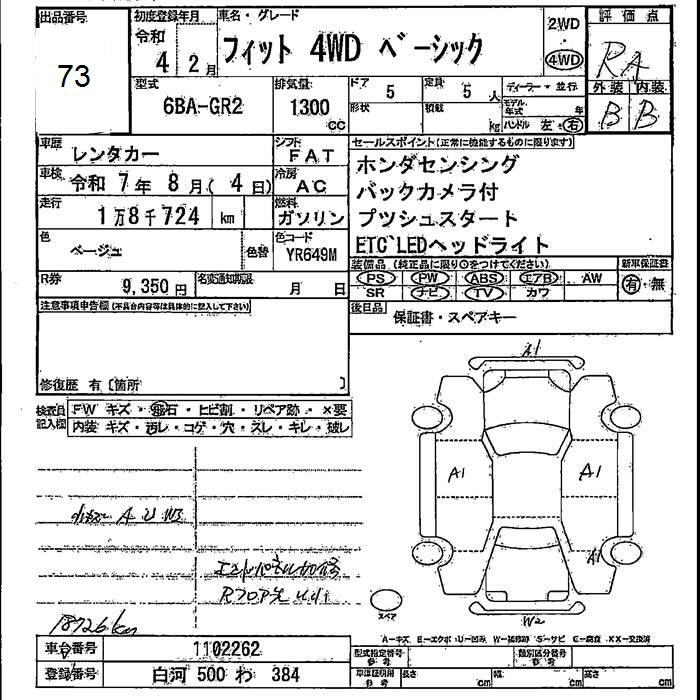 出品番号
73
初度登録年月
令和
4 2月
車名・グレード
フィット 4WD ベーシック
2WD
・
4WD
評価点
RA
外装 内装
B B
型式
6BA-GR2
排気量
1300
cc
ドア 5
形状
定員 5 人
積載 kg
ディーラー・並行
モデル年式 年
ハンドル 左・右
車歴 レンタカー
シフト FAT
車検 令和 7年 8月( 4日)
冷房 AC
走行 1万8千724 km
燃料 ガソリン
色 ベージュ 色替
色コード YR649M
R券 9,350円
名変通知期限 月 日
セールスポイント(正常に機能するものに限ります)
ホンダセンシング
バックカメラ付
プツシュスタート
ETC`LEDヘッドライト
装備品 (純正品に限り○をつけてください)
PS PW ABS エアB AW
SR ナビ TV カワ
新車保証書
有・無
後日品 保証書・スペアキー
注意事項申告欄(不具合内容等は具体的に記入して下さい)
修復歴 有〔箇所 〕
検査員記入欄
FW キズ・飛石・ヒビ割・リペア跡・×要
内装 キズ・汚レ・コゲ・穴・スレ・キレ・破レ
A U W3
18726km
A1
A1
A1
A1
W2
スペア
A-キズ E-エクボ U-凹み W-補修跡 S-サビ C-腐食 XX-交換済
車台番号 1102262
登録番号 白河 500 わ 384
型式指定番号 参考
類別区分番号 参考
車体証明用 参考
長さ cm
幅 cm
高さ cm